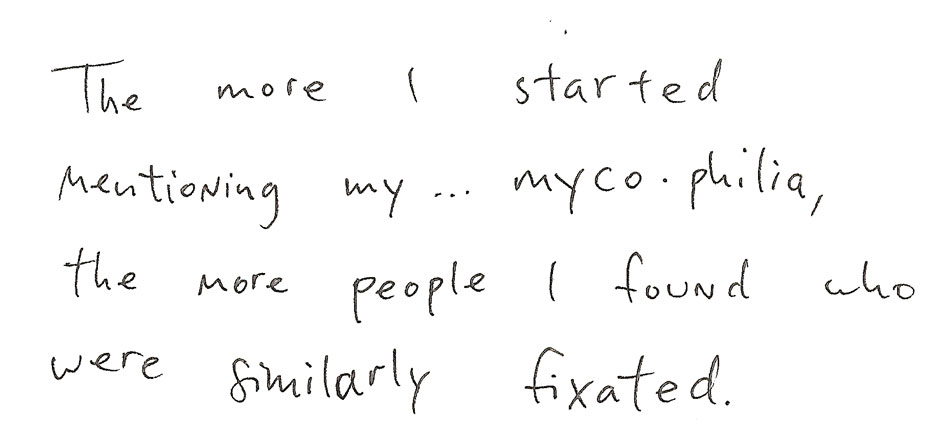 The more I started
mentioning my... myco·philia,
the more people I found who
were similarly fixated.